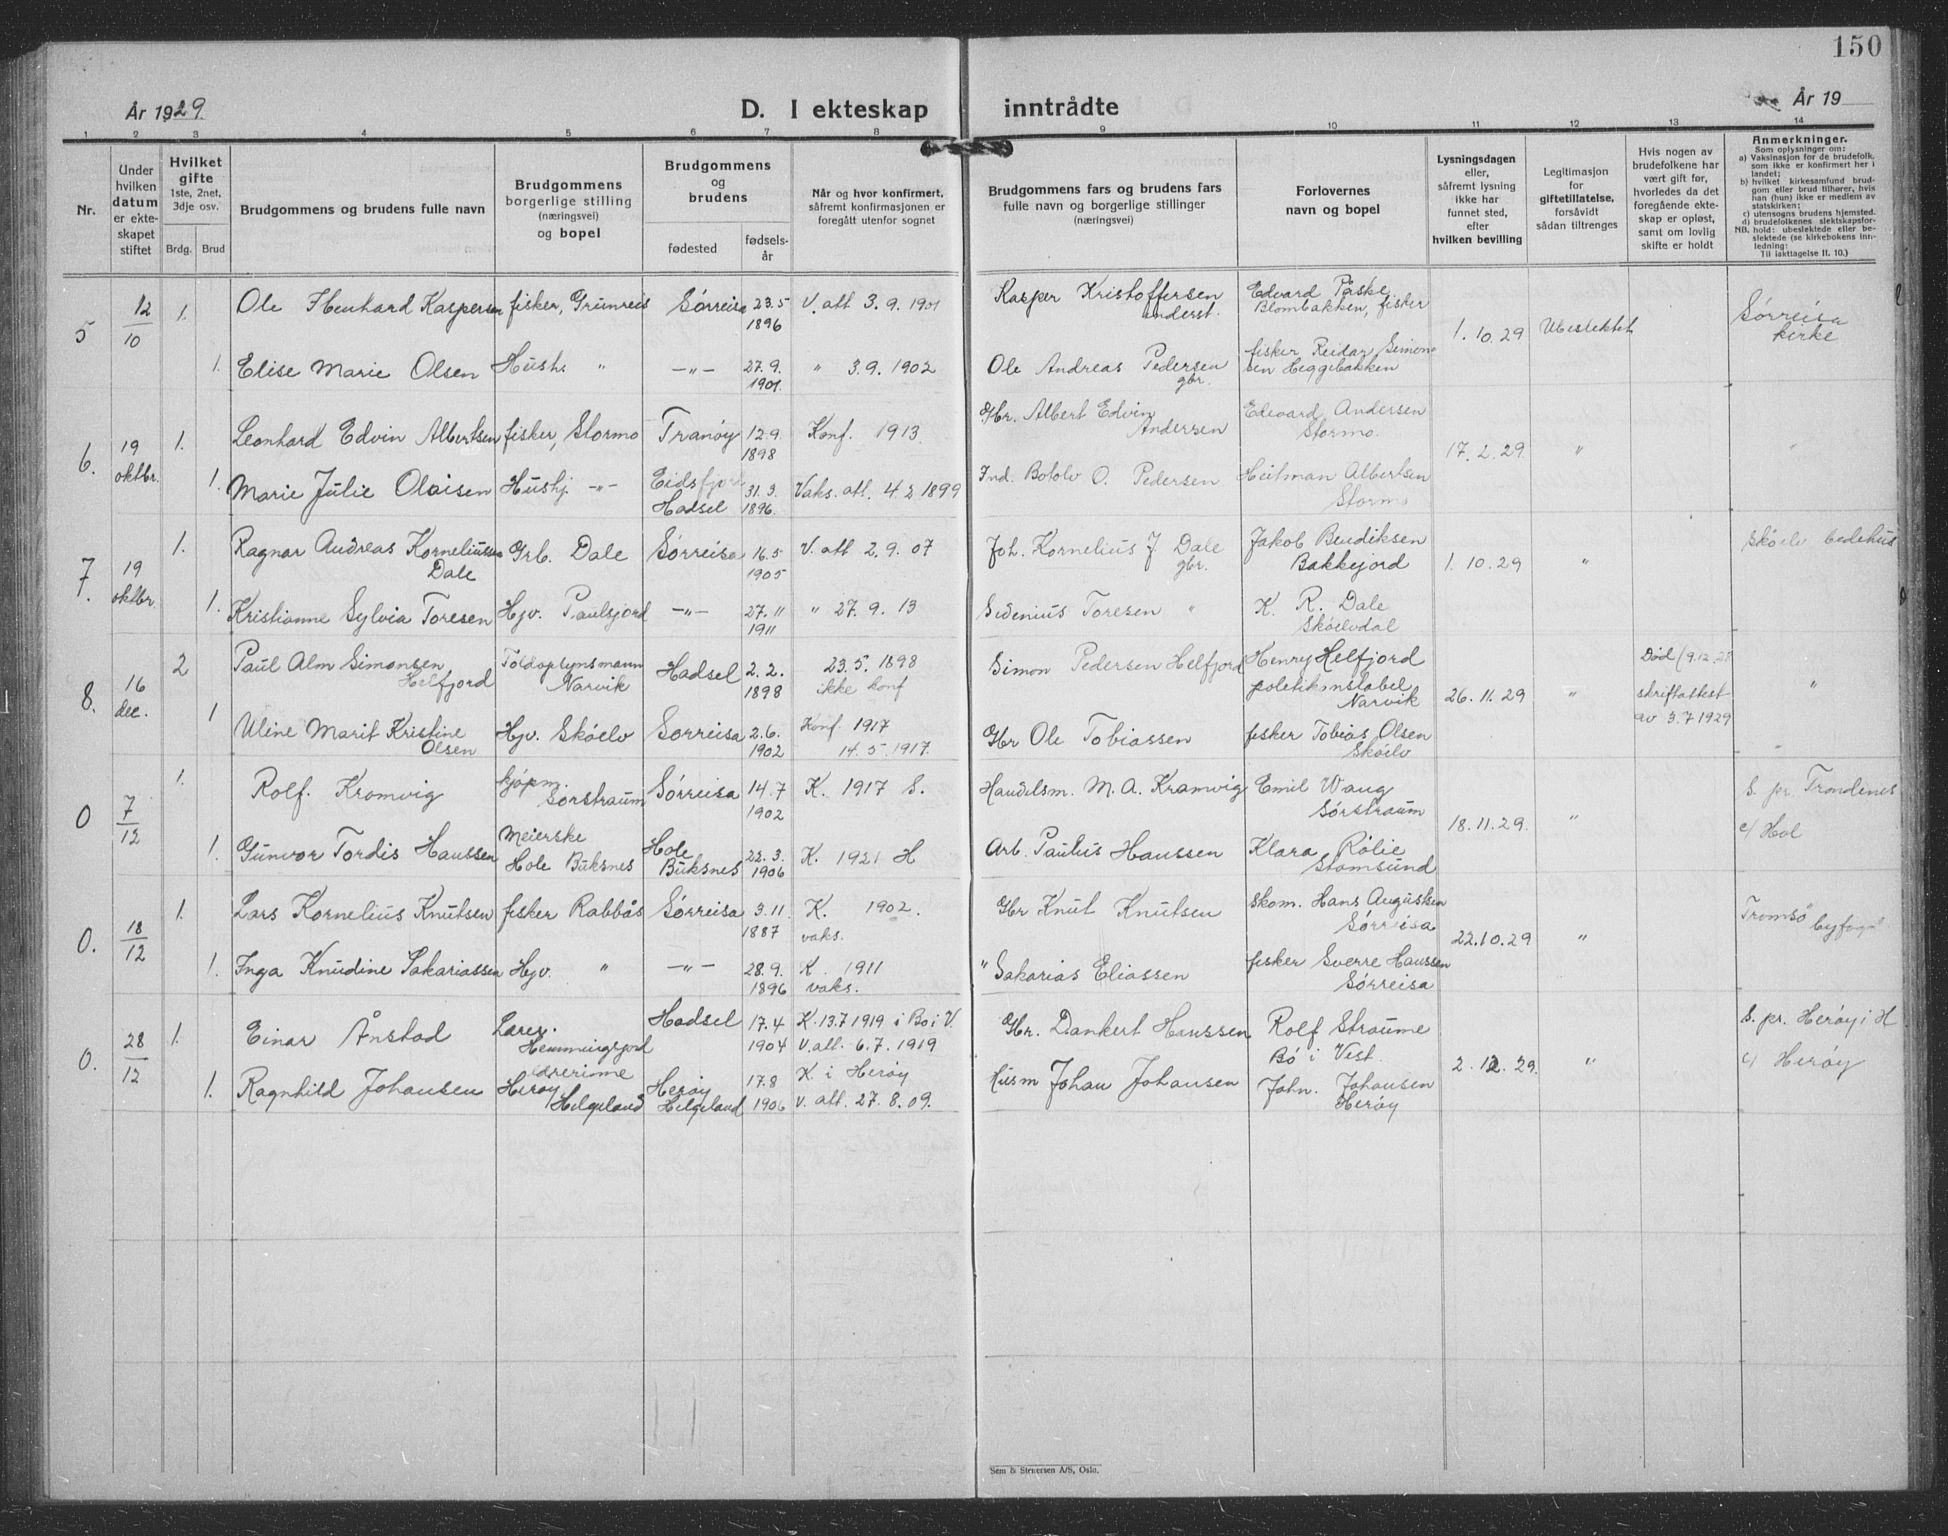 150
År 1929
D. I ekteskap inntrådte
År 19
1 2 3 4 5 6 7 8 9 10 11 12 13 14
Nr.
Under hvilken datum er ekteskapet stiftet
Hvilket gifte 1ste, 2net, 3dje osv.
Brdg. Brud
Brudgommens og brudens fulle navn
Brudgommens borgerlige stilling (næringsvei) og bopel
Brudgommens og brudens
fødested
fødselsår
Når og hvor konfirmert, såfremt konfirmasjonen er foregått utenfor sognet
Brudgommens fars og brudens fars fulle navn og borgerlige stillinger (næringsvei)
Forlovernes navn og bopel
Lysningsdagen eller, såfremt lysning ikke har funnet sted, efter hvilken bevilling
Legitimasjon for giftetillatelse, forsåvidt sådan tiltrenges
Hvis nogen av brudefolkene har vært gift før, hvorledes da det foregående ekteskap er opløst, samt om lovlig skifte er holdt
Anmerkninger.
Som oplysninger om:
a) Vaksinasjon for de brudefolk, som ikke er konfirmert her i landet;
b) hvilket kirkesamfund brudgom eller brud tilhører, hvis han (hun) ikke er medlem av statskirken;
c) utensogns brudens hjemsted.
d) brudefolkenes slektskapsforhold: ubeslektede eller beslektede (se kirkebokens innledning:
NB.
Til iakttagelse II. 10.)
5 12/10 1. Ole Kaspersen fisker, Grunreis Sørreisa 23.5 1896 V. att 3.9.1901 Kasper Kristoffersen Edvard Påske Blombakken, fisker 1.10.29 Ubeslektet Sørreisa kirke
1. Elise Marie Olsen Hush. " -"- 27.9. 1901 " 3.9.1902 Ole Andreas Pedersen gbr. fisker Reidar Simonsen Heggebakken
6. 19 oktbr. 1. Leonhard Edvin Albertsen fisker, Stormo Tranøy 12.9. 1898 Konf. 1913 Gbr. Albert Edvin Andersen Edvard Andersen Stormo. 17.2.29 " "
1. Marie Julie Olaisen Hushj. -"- Eidsfjord Hadsel 31.3. 1896. Vaks. att. 4.2 1899 Ind. Botolv O. Pedersen Heitman Albertsen Stormo
7. 19 oktbr 1. Ragnar Andreas Korneliussen Dale Grb. Dale Sørreisa 16.5 1905 V. att 2.9.07 Joh. Kornelius J Dale gbr. Jakob Bendiksen Bakkejord 1.10.29 " Skøelv bedehus
1. Kristianne Sylvia Toresen Hjv. Paulsjord -"- 27.11 1911 " 27.9.13 Sedenius Toresen " K. R. Dale Skøelvdal
8. 16 dec. 2 Paul Alm Simonsen Helfjord Toldopsynsmann Narvik Hadsel 2.2. 1898 23.5.1898 ikke konf Simon Pedersen Helfjord Henry Helfjord Narvik 26.11.29 " Død 19.12.28 skifteattest av 3.7.1929 "
1 Uline Marit Kristine Olsen Hjv. Skøelv Sørreisa 2.6. 1902 Konf 1917 14.5.1917. Gbr Ole Tobiassen fisker Tobias Olsen Skøelv "
0 7/12 1. Rolf. Kramvig kjøpm. Sørstraum Sørreisa 14.7 1902 K. 1917 S. Handelsm. M. A. Kramvig Emil Wang Sørstraum 18.11.29. " S. pr. Trondenes
1. Gunvor Tordis Hanssen Meierske Hole Buksnes Hole Buksnes 22.3. 1906 K. 1921 H Arb. Paulus Hanssen Klara Rølie Stamsund c/ Hol
0. 18/12 1. Lars Kornelius Knutsen fisker Rabbås Sørreisa 3.11. 1887 K. 1902. vaks. Gbr Knut Knutsen Skom. Hans Augustsen Sørreisa 22.10.29 " Tromsø byfogd
1. Inga Knudine Sakariassen Hjv. " -"- 28.9. 1896 K. 1911 vaks. " Sakarias Eliassen fisker Sverre Hanssen Sørreisa
0. 28/12 1. Einar Ånstad Lærer. Hemmingsjord Hadsel 17.4 1904 K. 13.7 1919 i Bø i V. V. att. 6.7.1919 Gbr. Dankert Hanssen Rolf Straume Bø i Vest. 2.12.29. " S. pr. Herøy i H
1. Ragnhild Johansen Herøy Helgeland Herøy Helgeland 17.8 1906 K. i Herøy v. att. 27.8.09. Husm Johan Johansen John. Johansen Herøy c/ Herøy
Sem & Stenersen A/S, Oslo.